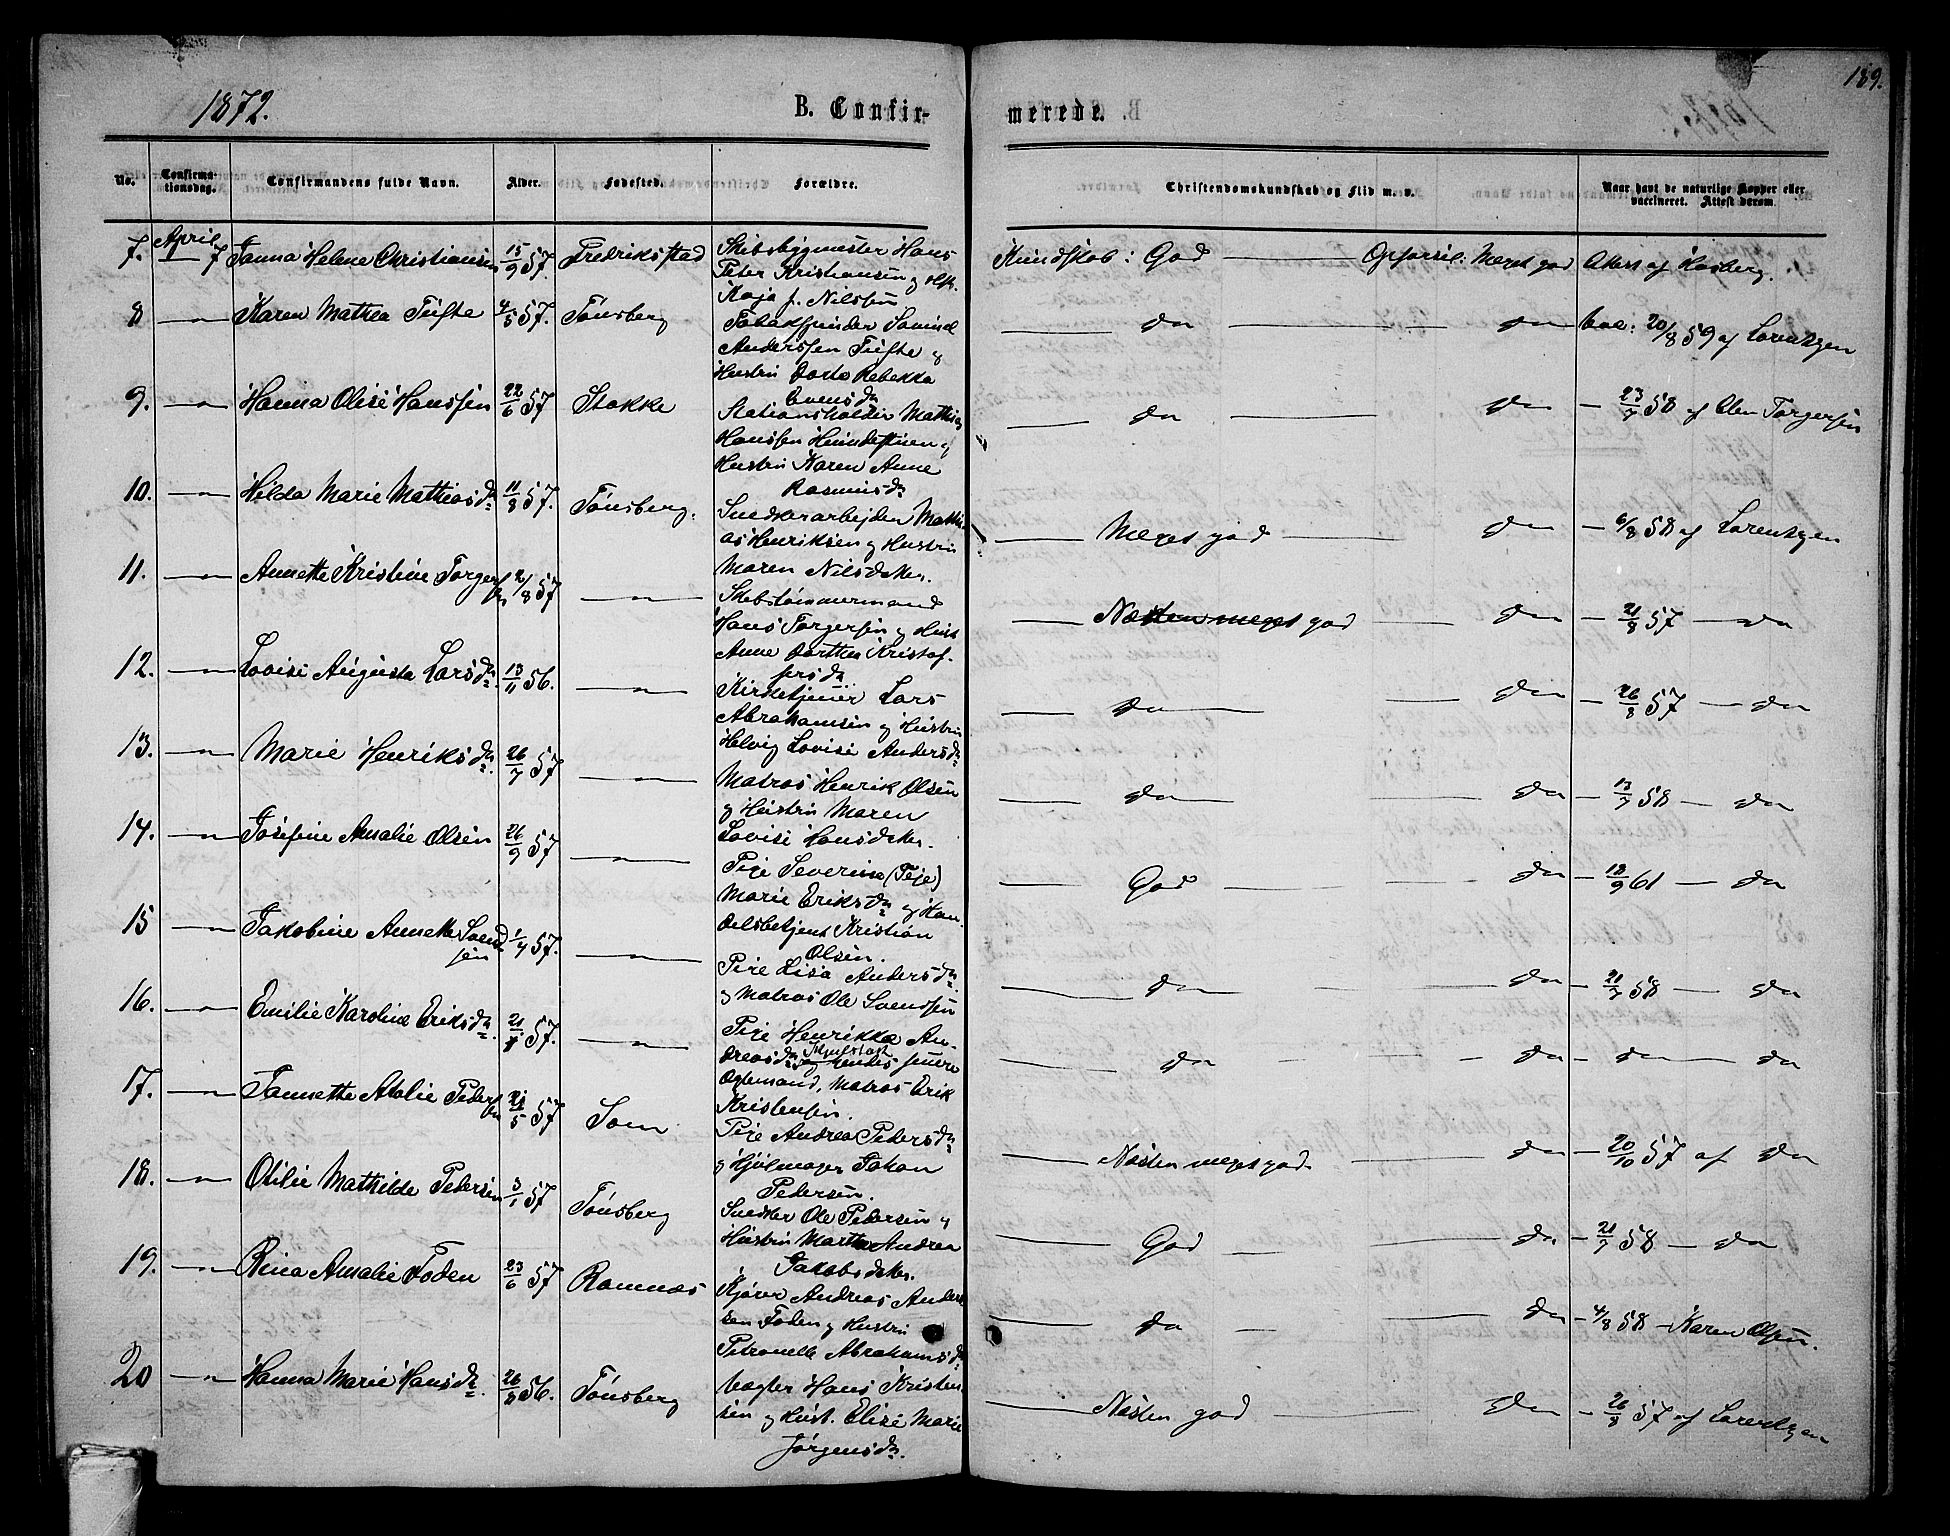 189.
1872.
B. Confir-
merede.
No.
Confirma-
tionsdag.
Confirmandens fulde Navn.
Alder.
Fødested.
Forældre.
Christendomskundskab og Flid m. v.
Naar havt de naturlige Kopper eller
vaccineret. Attest derom.
7. April 7 Janna Helene Christiansen 15/9 57 Fredriksstad
Skibsbygmester Hans
Peter Kristiansen og Hst.
Kaja f. Nilssen
Kundskab: God Opførsel: Meget god Attest af Hasberg.
8 —"— Karen Mathea Tufte 4/5 57. Tønsberg
Tobakspinder Samuel
Anderssen Tufte og
Hustru Dorte Rebekka
Evensdr
— do — do — Vac: 20/8 59 af Lorentzen
9. —"— Hanna Olise Hanssen 22/6 57 Stokke
Stationsholder Mathias
Hanssen Hundestuen og
Hustru Karen Anne
Rasmusdr
— do — do — 23/7 58 af Elen Torgersen
10. —"— Hilda Marie Mathiasdr. 11/8 57. Tønsberg.
Snedkerarbejder Mathi
as Henriksen og Hustru
Maren Nilsdater.
— Meget god — do — 6/8 58 af Lorentzen
11. —"— Annette Kristine Torger
sen 2/8 57 —"—
Skibstømmermand
Hans Torgersen og Hust
Anne Dorthea Kristof-
fersdr
— Næsten meget god — do — 21/8 57 — do
12. —"— Lovise Augusta Larsdr. 13/11 56. —"—
Kirketjener Lars
Abrahamsen og Hustru
Helvig Lovise Andersdr
— do — do — 26/8 57 — do
13. —"— Marie Henriksdr. 26/7 57 —"—
Matros Henrik Olsen
og Hustru Maren
Lovise Hansdater.
— do — do — 13/7 58 — do
14. —"— Josefine Amalie Olsen 26/9 57 —"—
Pige Severine (Teje)
Marie Eriksdr og Han-
delsbetjent Kristian
Olsen.
— God — do — 12/9 61 — do
15 —"— Jakobine Annette Svend
sen 1/4 57. —"—
Pige Lisa Andersdr
og Matros Ole Svendsen
— do — do — 21/7 58 — do
16. —"— Emilie Karoline Eriksdr. 21/ 57. —"—
Pige Henrikke An-
dreasdr og Hendes senere
Ægtemand, Matros Erik
Kristensen.
— do — do — do — do
17. —"— Jannette Atalie Peder
sen 21/5 57 Sem
Pige Andrea Pedersdr
og Hjulmager Johan
Pedersen.
— Næsten meget god — do — 20/10 57 af do
18. —"— Otilie Mathilde Pedersen 3/1 57 Tønsberg
Snedker Ole Pedersen og
Hustru Marthe Andrea
Jakobsdater.
— God — do — 21/7 58 — do
19. —"— Rina Amalie Foden 23/6 57 Ramnæs
Kjører Andreas Anders
sen Foden og Hustru
Petronelle Abrahamsdr
— do — do — 4/8 58 — Karen Olsen.
20 —"— Hanna Marie Hansdr. 26/ 56. Tønsberg
Vægter Hans Kristen
sen og Hust. Elise Marie
Jørgensdr.
— Næsten god — do — 26/8 57 af Lorentzen